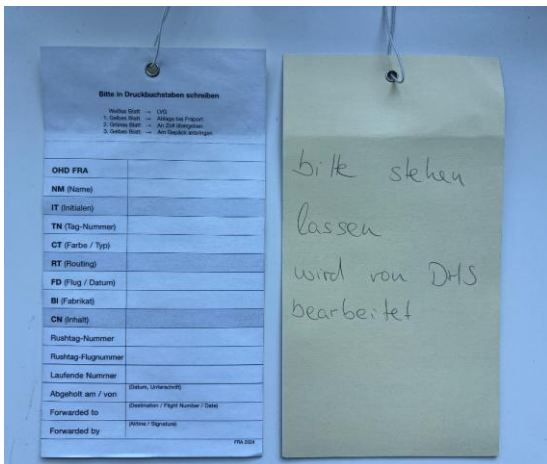 Bitte in Druckbuchstaben schreiben
Weißes Blatt → LVG
1. Gelbes Blatt → Ablage bei Fraport
2. Grünes Blatt → An Zoll übergeben
3. Gelbes Blatt → Am Gepäck anbringen
OHD FRA
NM (Name)
IT (Initialen)
TN (Tag-Nummer)
CT (Farbe / Typ)
RT (Routing)
FD (Flug / Datum)
BI (Fabrikat)
CN (Inhalt)
Rushtag-Nummer
Rushtag-Flugnummer
Laufende Nummer
Abgeholt am / von (Datum, Unterschrift)
Forwarded to (Destination / Flight Number / Date)
Forwarded by (Airline / Signature)
FRA 2024
bitte stehen
lassen
wird von DHS
bearbeitet